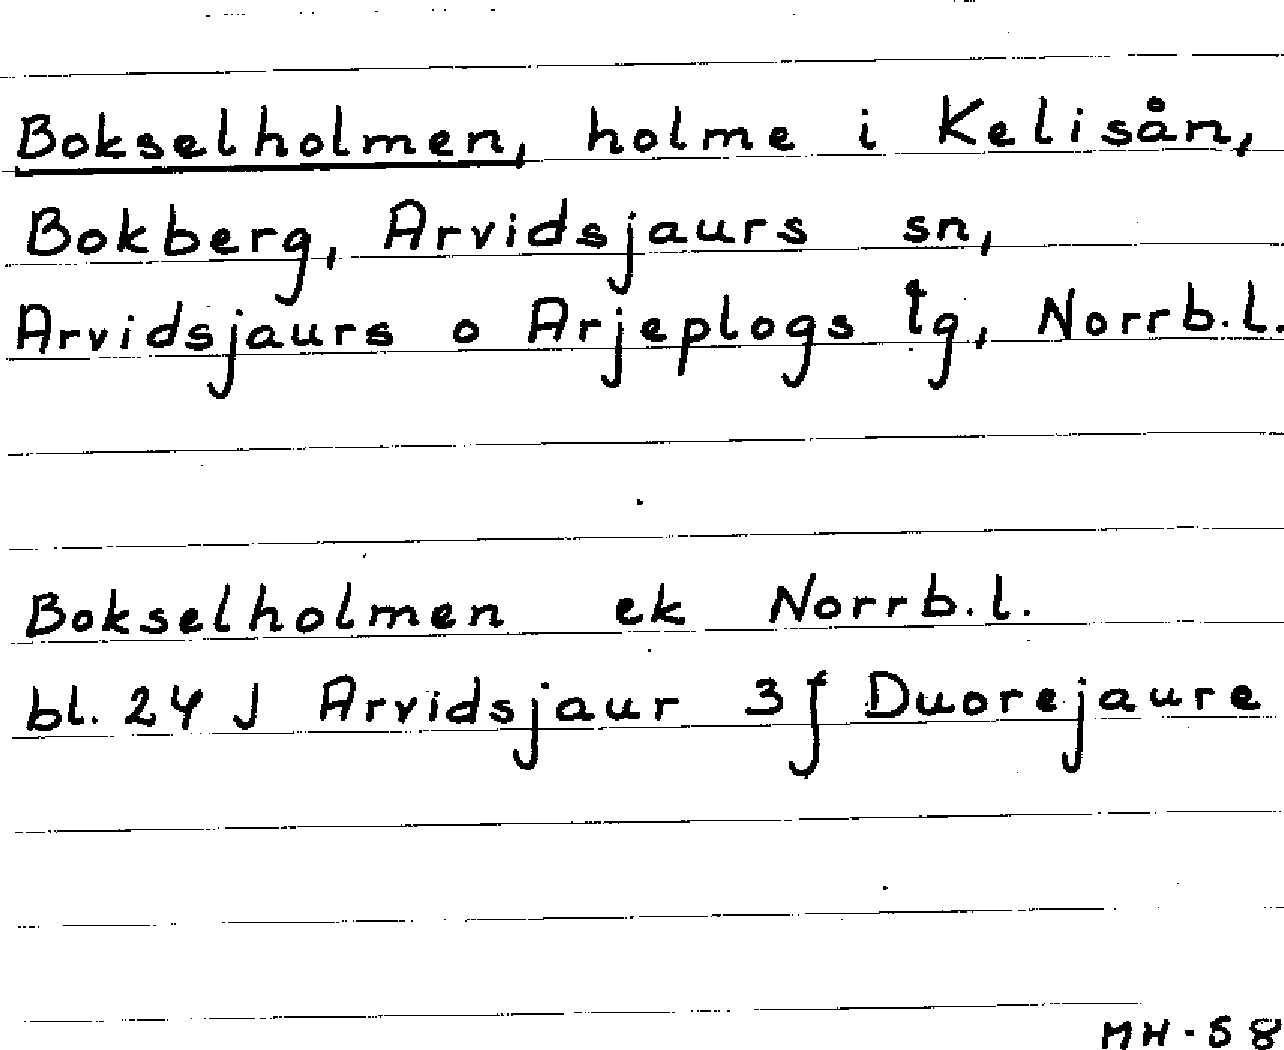 Bokselholmen, holme i Kelisån,
Bokberg, Arvidsjaurs sn,
Arvidsjaurs o Arjeplogs tg, Norrb.l.
Bokselholmen ek Norrb.l.
bl. 24 J Arvidsjaur 3 f Duorejaure
MH-58